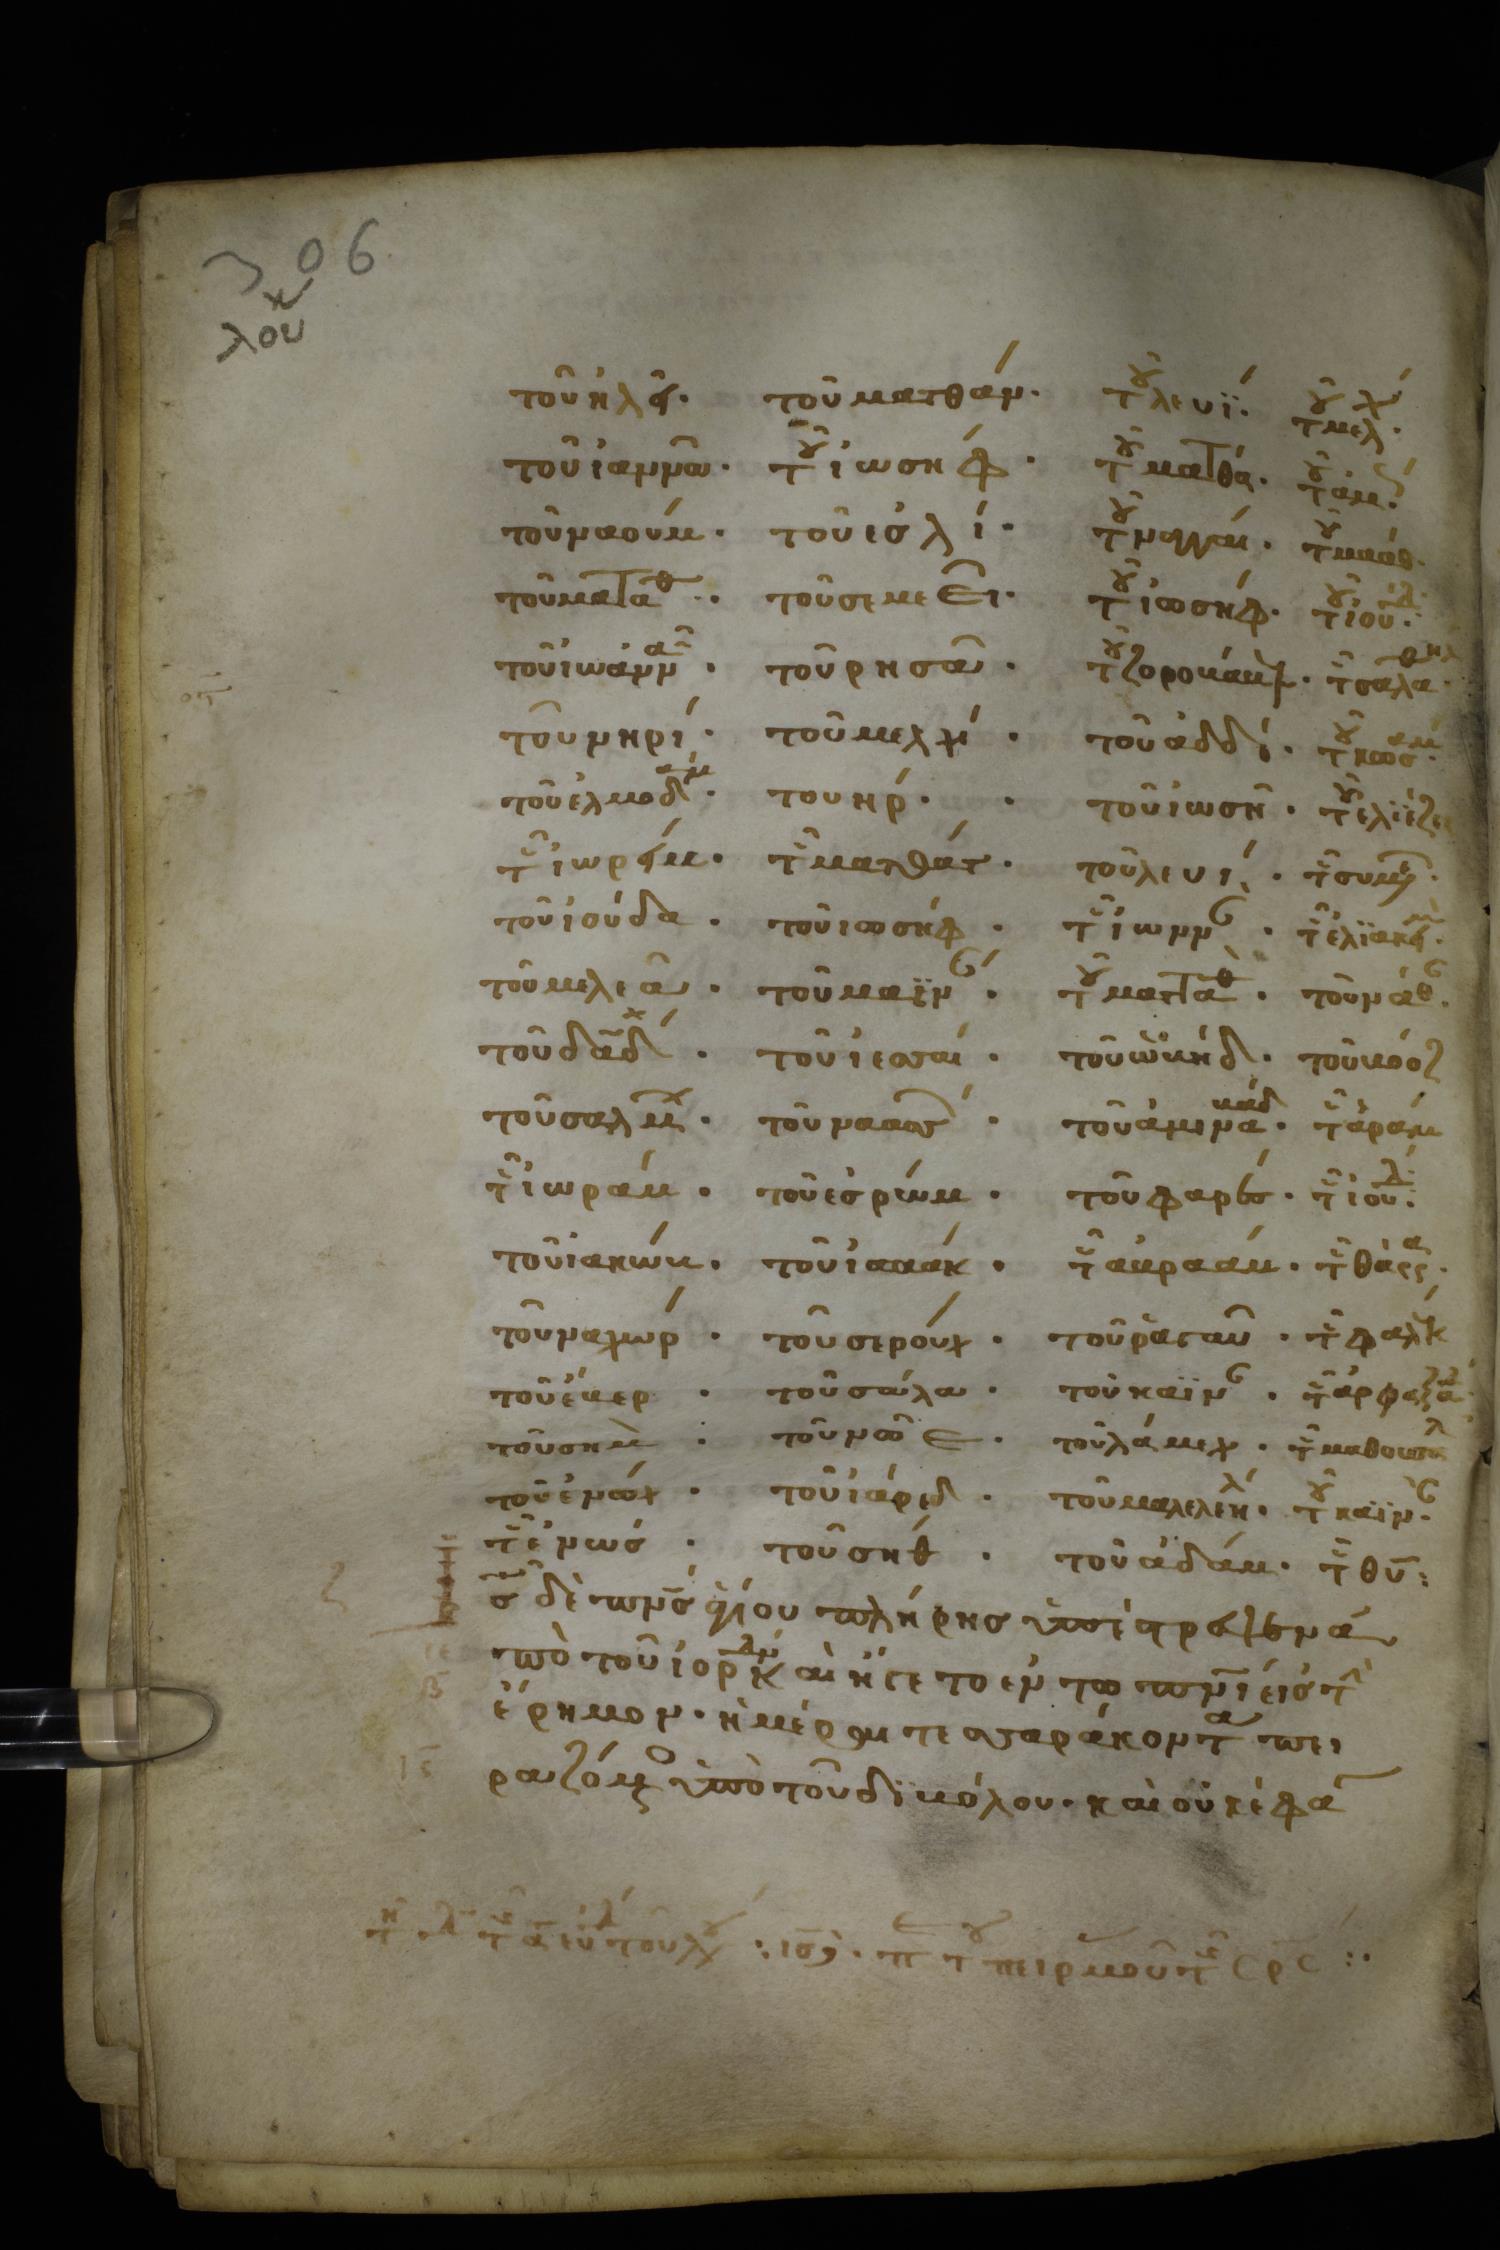 306
λου
τοῦ ἡλὶ. τοῦ ματθάν. τοῦ λευΐ. τοῦ μελχ.
τοῦ ἰαννᾶ. τοῦ ἰωσήφ. τοῦ ματταθ. τοῦ ἀμ.
τοῦ ναούμ. τοῦ ἐσλί. τοῦ ναγγαί. τοῦ μαάθ.
τοῦ ματταθ. τοῦ σεμεεῒ. τοῦ ἰωσήφ. τοῦ ἰουδ.
τοῦ ἰωάνναν. τοῦ ρησᾶ. τοῦ ζοροβάβελ. τοῦ σαλαθιηλ.
τοῦ νηρί. τοῦ μελχί. τοῦ ἀδδί. τοῦ κωσάμ.
τοῦ ἐλμοδάμ. του ήρ. τοῦ ἰωσῆ. τοῦ ἐλιέζε
τοῦ ἰωρείμ. τοῦ ματθάτ. τοῦ λευί. τοῦ συμε.
τοῦ ἰούδα. τοῦ ἰωσήφ. τοῦ ἰωνν. τοῦ ἐλϊακείμ.
τοῦ μελεᾶ. τοῦ μαϊν. τοῦ ματταθ. τοῦ νάθ.
τοῦ δᾶδ. τοῦ ἰεσσαί. τοῦ ὠβήδ. τοῦ βόοζ
τοῦ σαλμ. τοῦ ναασ. τοῦ ἀμιναδάβ. τοῦ ἀράμ
τοῦ ἰωράμ. τοῦ ἐσρώμ. τοῦ φαρές. τοῦ ἰουδ.
τοῦ ἰακώβ. τοῦ ἰσαάκ. τοῦ ἀβραάμ. τοῦ θάρρα.
τοῦ ναχώρ. τοῦ σερούχ. τοῦ ῥαγαῦ. τοῦ φαλέκ
τοῦ ἔβερ. τοῦ σάλα. τοῦ καϊν. τοῦ ἀρφαξάδ.
τοῦ σήμ. τοῦ νῶε. τοῦ λάμεχ. τοῦ μαθουσάλα
τοῦ ἐνώχ. τοῦ ἰάρεδ. τοῦ μαλελεήλ. τοῦ καϊν.
τοῦ ἐνώς. τοῦ σήθ. τοῦ ἀδάμ. τοῦ θῡ:
ῑς δὲ πν̅ς ἁγίου πλήρης ὑπέστρεψεν ἀ
πὸ τοῦ ἰορδάν καὶ ἤγετο ἐν τω πνῑ εἰς τὴν
ἔρημον. ἡμέρας τεσσαράκοντα πει
ραζόμενος ὑπὸ τοῦ διαβόλου. καὶ οὐκ ἔφα